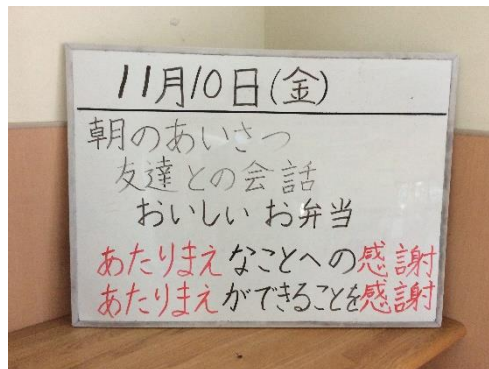 11月10日(金)
朝のあいさつ
友達との会話
おいしいお弁当
あたりまえなことへの感謝
あたりまえができることを感謝